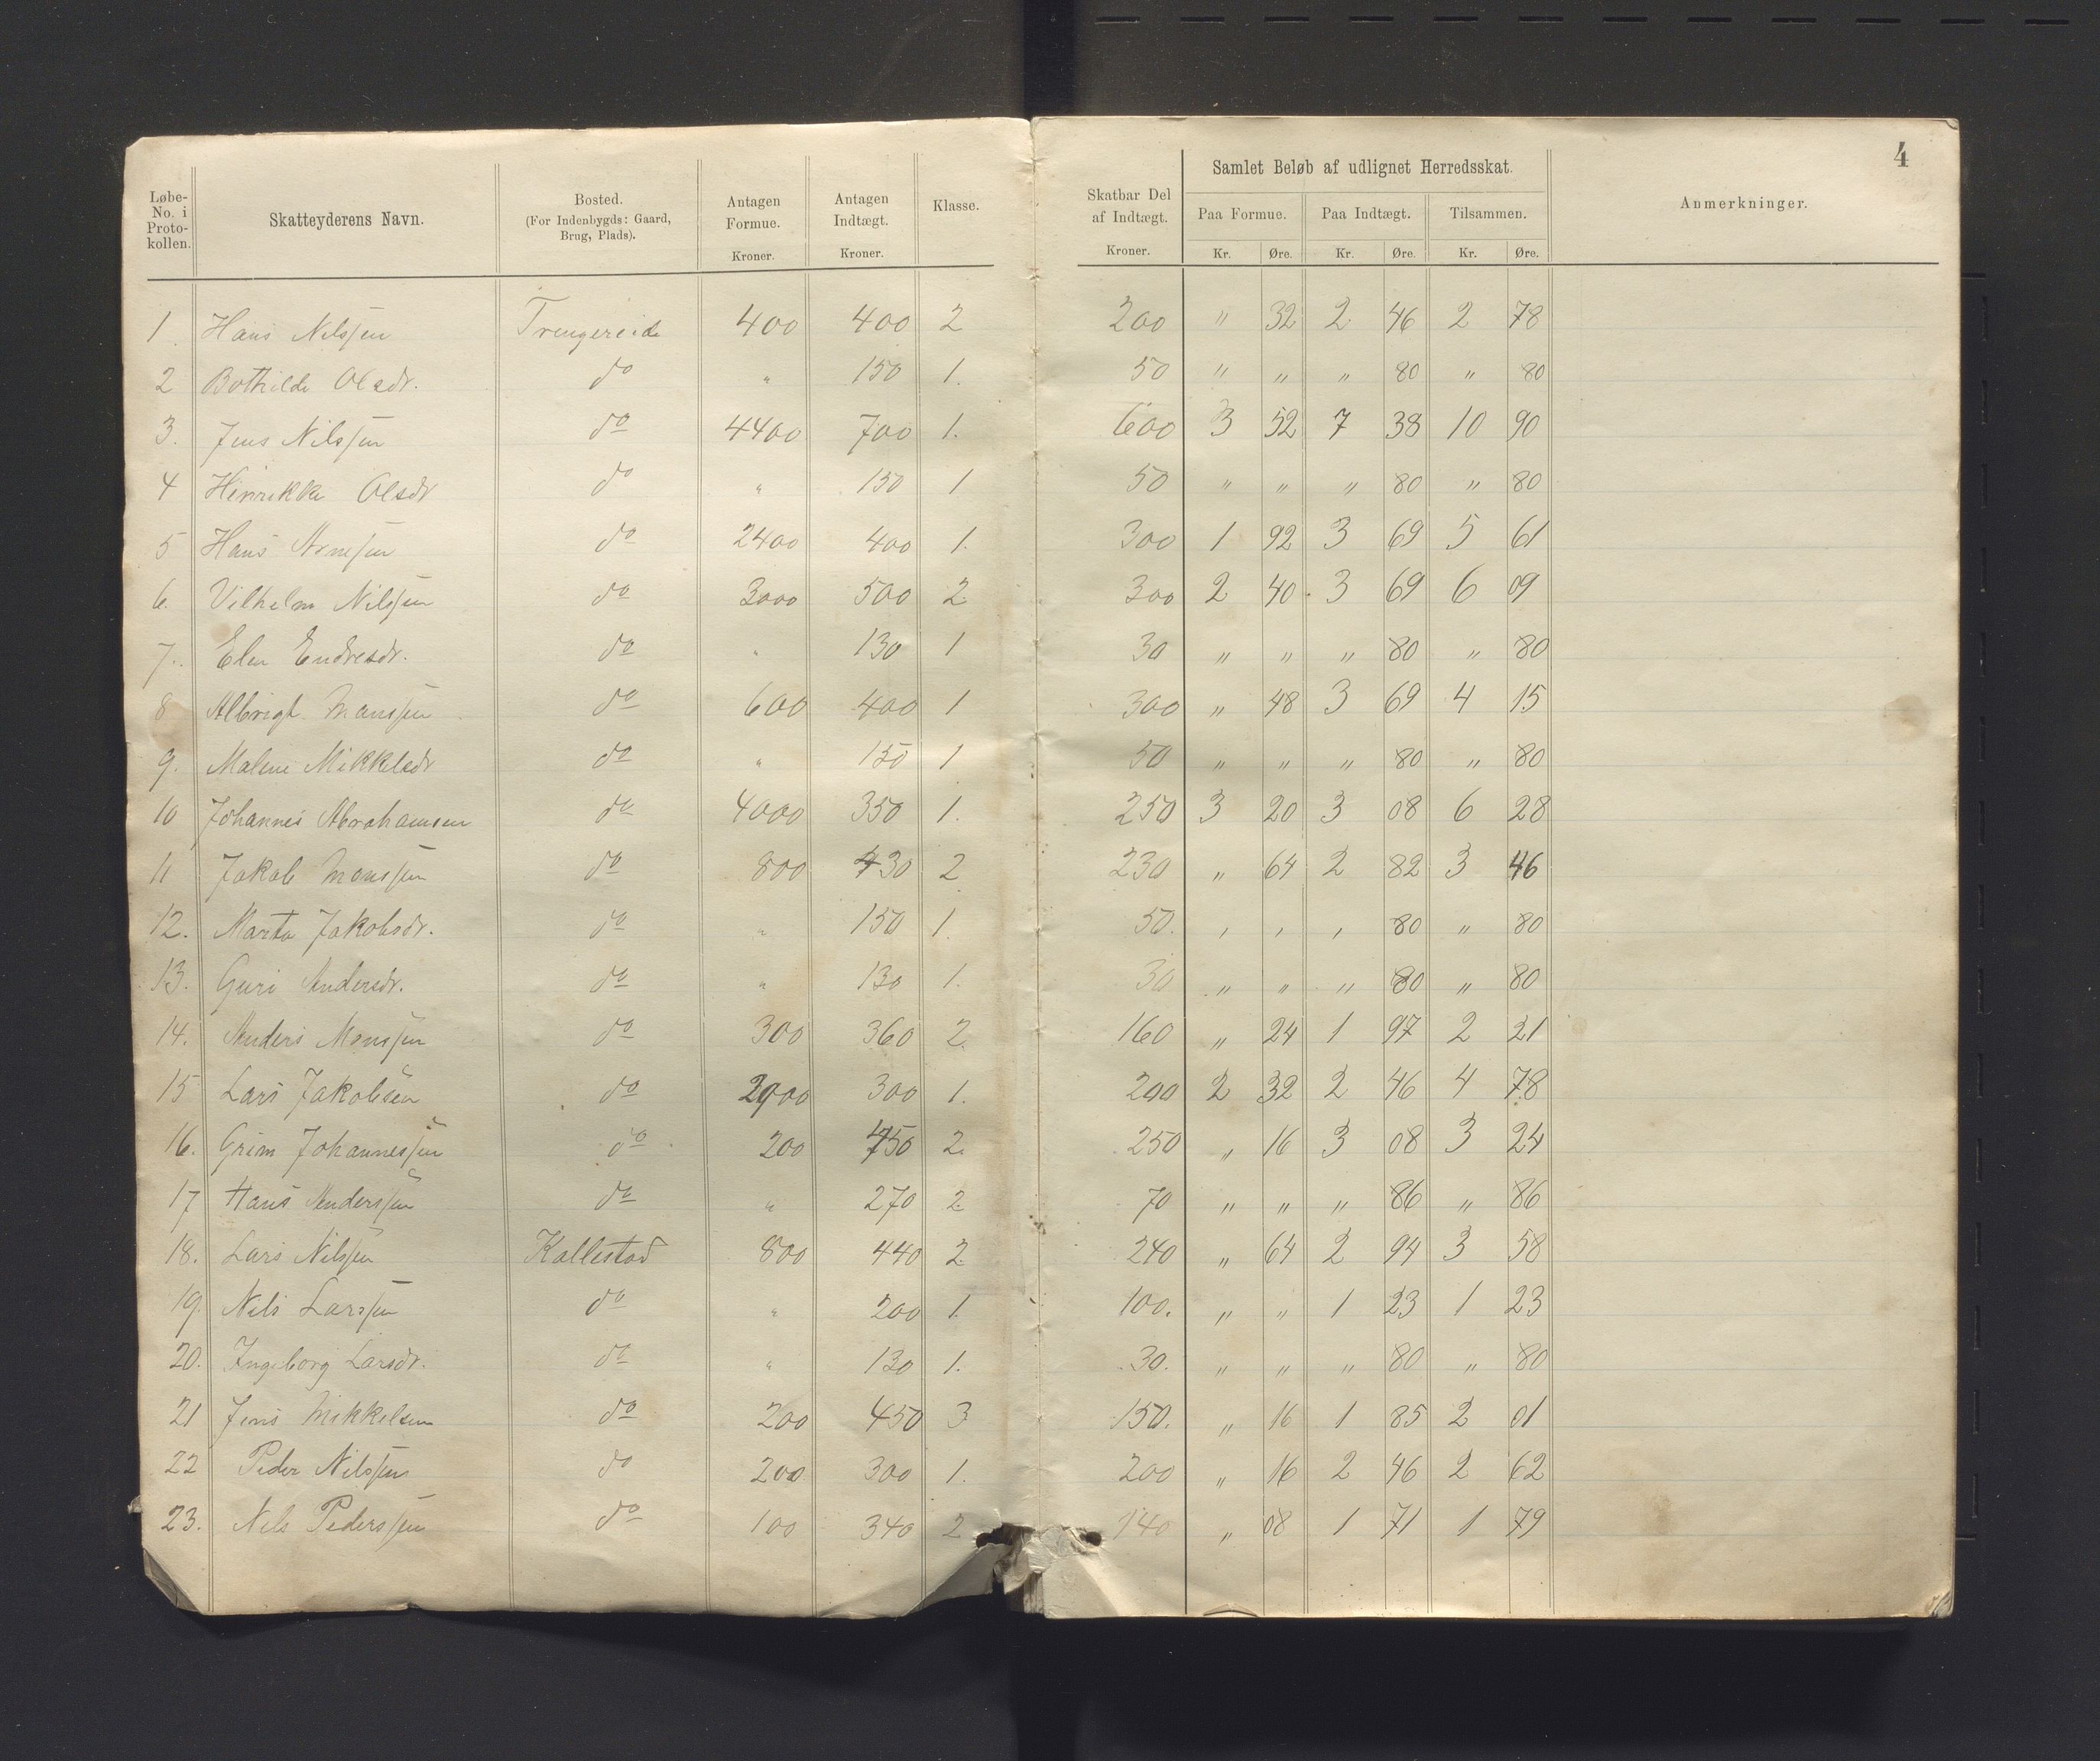 4
Løbe-No. i Proto-kollen. Skatteyderens Navn. Bosted. (For Indenbygds: Gaard, Brug, Plads). Antagen Formue. Kroner. Antagen Indtægt. Kroner. Klasse. Skatbar Del af Indtægt. Kroner. Samlet Beløb af udlignet Herredsskat. Paa Formue. Kr. Øre. Paa Indtægt. Kr. Øre. Tilsammen. Kr. Øre. Anmerkninger.
1. Hans Nilssen Trengereide 400 400 2 200 " 32 2 46 2 78
2 Bothilde Olsdr. do " 150 1. 50 " " " 80 " 80
3. Jens Nilssen do 4400 700 1. 600 3 52 7 38 10 90
4 Hinrikke Olsdr do " 150 1 50 " " " 80 " 80
5 Hans Arnesen do 2400 400 1. 300 1 92 3 69 5 61
6. Vilhelm Nilssen do 3000 500 2 300 2 40 3 69 6 09
7. Elen Endresdr. do " 130 1 30 " " " 80 " 80
8 Albrigt Monssen do 600 400 1 300 " 48 3 69 4 15
9. Malene Mikkelsdr do " 150 1 50 " " " 80 " 80
10 Johannes Abrahamsen do 4000 350 1. 250 3 20 3 08 6 28
11 Jakob Monssen do 800 430 2 230 " 64 2 82 3 46
12. Marta Jakobsdr. do " 150 1. 50. " " " 80 " 80
13. Guri Andersdr. do " 130 1. 30 " " " 80 " 80
14. Anders Monssen do 300 360 2. 160 " 24 1 97 2 21
15 Lars Jakobsen do 2900 300 1. 200 2 32 2 46 4 78
16. Grim Johannessen do 200 450 2. 250 " 16 3 08 3 24
17 Hans Anderssen do " 270 2 70 " " " 86 " 86
18. Lars Nilssen Kallestad 800 440 2 240 " 64 2 94 3 58
19. Nils Larssen do " 200 1. 100. " " 1 23 1 23
20. Ingeborg Larsdr. do " 130 1. 30. " " " 80 " 80
21 Jens Mikkelsen do 200 450 3 150. " 16 1 85 2 01
22 Peder Nilssen do 200 300 1. 200 " 16 2 46 2 62
23. Nils Pederssen do 100 340 2 140 " 08 1 71 1 79